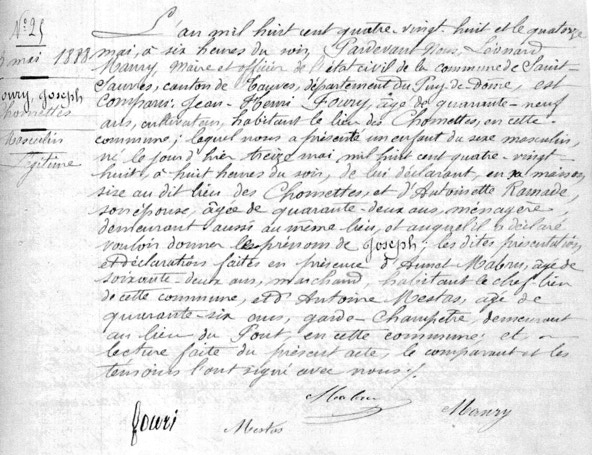 N° 25
mai 1888
Foury, Joseph
Chomettes
Masculin
légitime
L'an mil huit cent quatre-vingt-huit et le quatorze
mai, à six heures du soir, Pardevant Nous, Léonard
Maury, Maire et officier de l'état civil de la commune de Saint-
Sauves, canton de Tauves, département du Puy-de-Dôme, est
comparu: Jean-Henri Foury, âgé de quarante-neuf
ans, cultivateur, habitant le lieu des Chomettes, en cette
commune; lequel nous a présenté un enfant du sexe masculin,
né le jour d'hier treize mai, mil huit cent quatre-vingt-
huit, à huit heures du soir, de lui déclarant, en sa maison,
size au dit lieu des Chomettes, et d'Antoinette Ramade,
son épouse, âgée de quarante-deux ans, ménagère,
demeurant aussi au même lieu, et auquel il a déclaré
vouloir donner le prénom de Joseph; les dites présentation
et déclarations faites en présence d'Annet Mabru, âgé de
soixante-deux ans, marchand, habitant le chef-lieu
de cette commune, et d'Antoine Mestas, âgé de
quarante-six ans, garde-Champêtre, demeurant
au lieu du Pont, en cette commune; et,
lecture faite du présent acte, le comparant et les
témoins l'ont signé avec nous.
fouri Mestas Mabru Maury